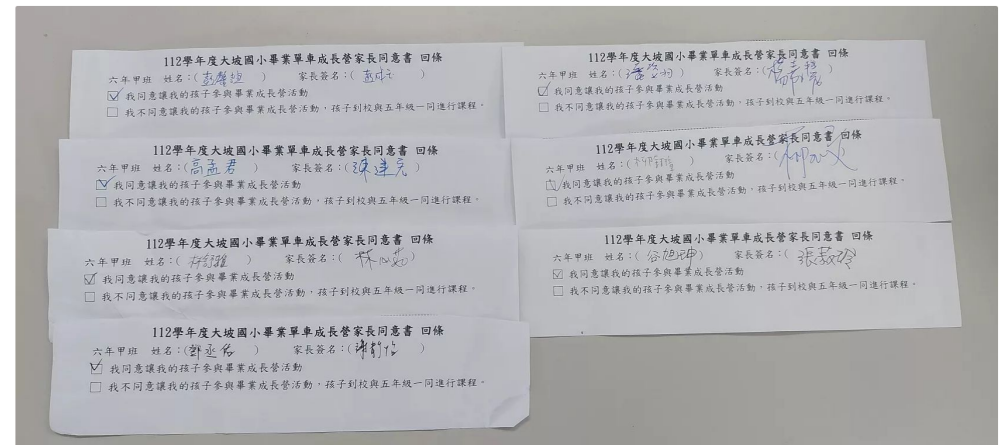 112學年度大坡國小畢業單車成長營家長同意書 回條
六年甲班 姓名:( ) 家長簽名:( )
☑ 我同意讓我的孩子參與畢業成長營活動
☐ 我不同意讓我的孩子參與畢業成長營活動,孩子到校與五年級一同進行課程。
112學年度大坡國小畢業單車成長營家長同意書 回條
六年甲班 姓名:(高孟君) 家長簽名:(陳建亮)
☑ 我同意讓我的孩子參與畢業成長營活動
☐ 我不同意讓我的孩子參與畢業成長營活動,孩子到校與五年級一同進行課程。
112學年度大坡國小畢業單車成長營家長同意書 回條
六年甲班 姓名:( ) 家長簽名:( )
☑ 我同意讓我的孩子參與畢業成長營活動
☐ 我不同意讓我的孩子參與畢業成長營活動,孩子到校與五年級一同進行課程。
112學年度大坡國小畢業單車成長營家長同意書 回條
六年甲班 姓名:(鄭丞佑) 家長簽名:( )
☑ 我同意讓我的孩子參與畢業成長營活動
☐ 我不同意讓我的孩子參與畢業成長營活動,孩子到校與五年級一同進行課程。
112學年度大坡國小畢業單車成長營家長同意書 回條
六年甲班 姓名:( ) 家長簽名:( )
☑ 我同意讓我的孩子參與畢業成長營活動
☐ 我不同意讓我的孩子參與畢業成長營活動,孩子到校與五年級一同進行課程。
112學年度大坡國小畢業單車成長營家長同意書 回條
六年甲班 姓名:( ) 家長簽名:( )
☑ 我同意讓我的孩子參與畢業成長營活動
☐ 我不同意讓我的孩子參與畢業成長營活動,孩子到校與五年級一同進行課程。
112學年度大坡國小畢業單車成長營家長同意書 回條
六年甲班 姓名:(谷旭坤) 家長簽名:( )
☑ 我同意讓我的孩子參與畢業成長營活動
☐ 我不同意讓我的孩子參與畢業成長營活動,孩子到校與五年級一同進行課程。